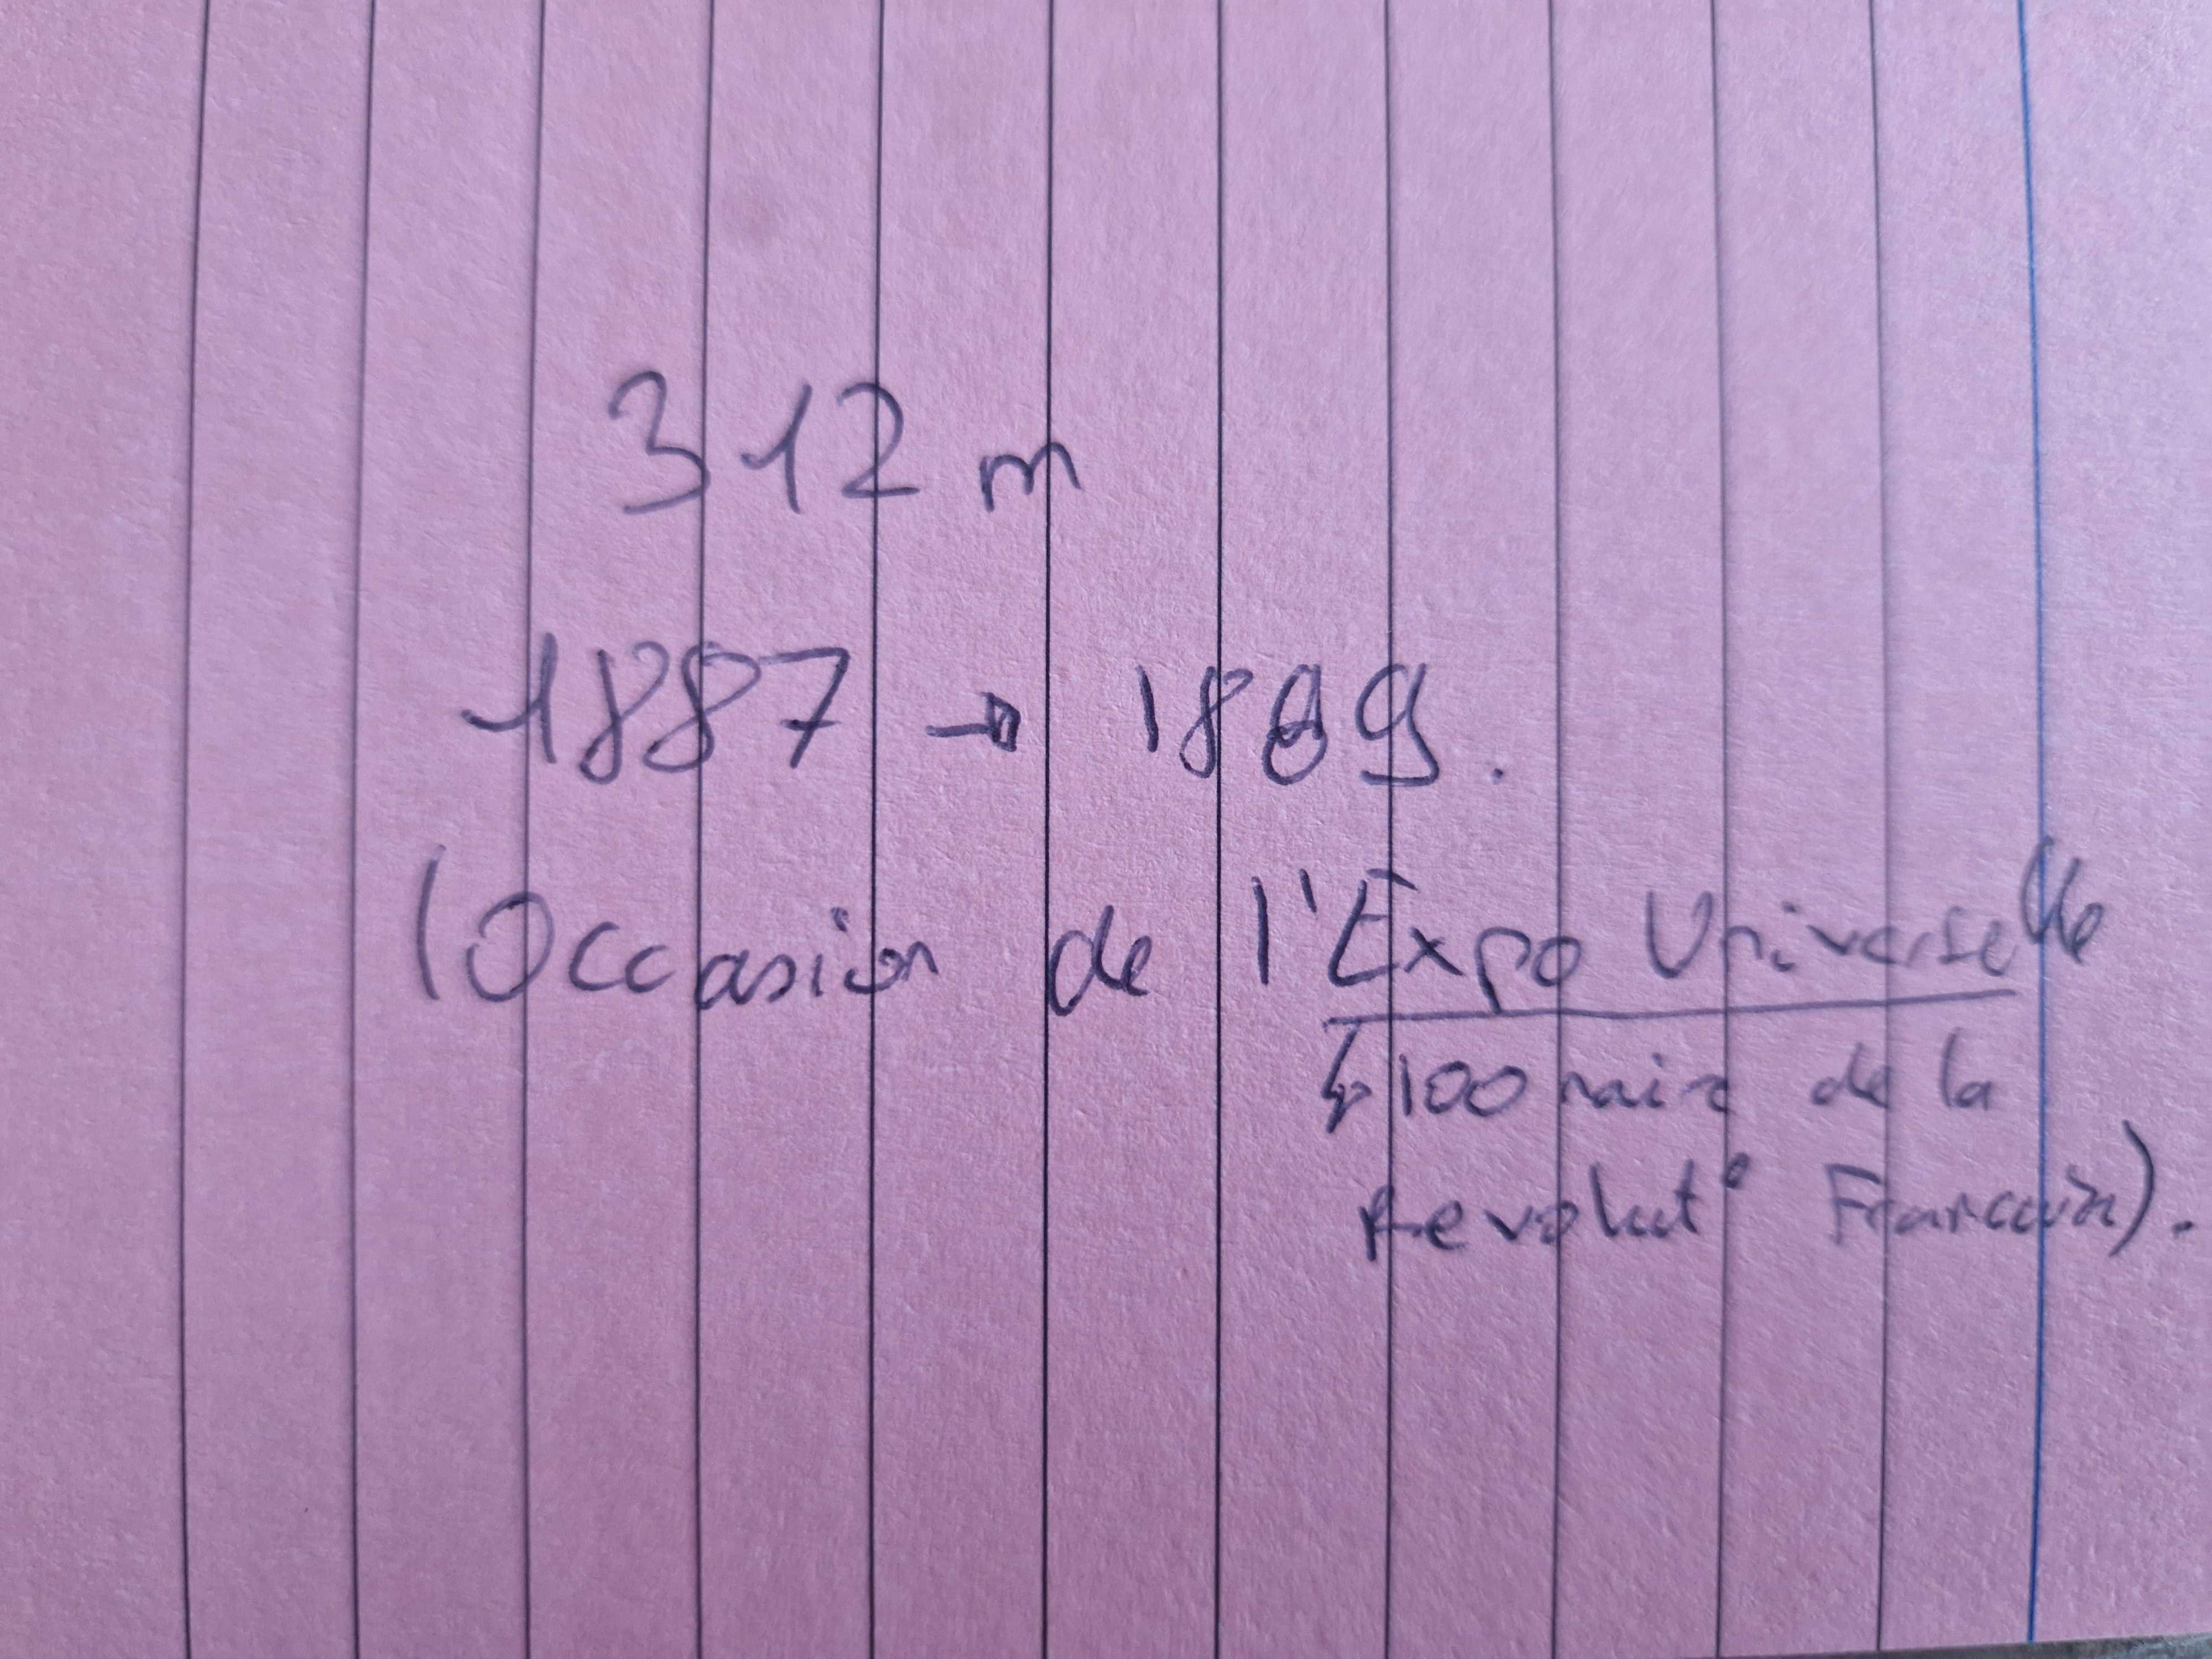 312 m
1887 → 1889.
(Occasion de l'Expo Universelle
↳ 100naire de la
Revolut° Francaise).